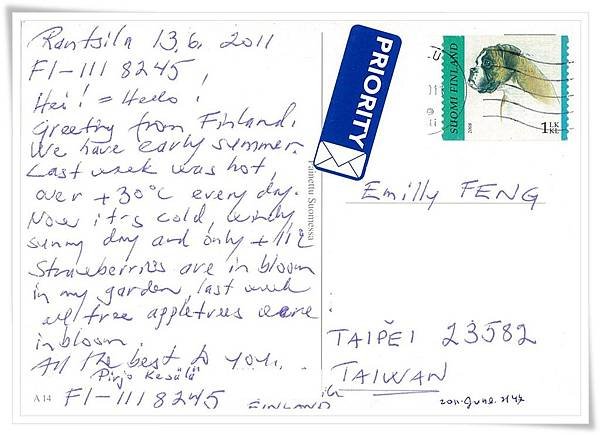 Rantsila 13.6. 2011
FI-1118245
Hei! = Hello!
Greeting from Finland.
We have early summer.
Last week was hot,
over +30°C every day.
Now it's cold, windy,
sunny day and only +11°C
Strawberries are in bloom
in my garden, last week
all free appletrees were
in bloom.
All the best to you.
Pirjo Kesälä
A 14
FI-1118245
FINLAND
Painettu Suomessa
PRIORITY
SUOMI FINLAND
2008
1 LK
KL
Emilly FENG
TAIPEI 23582
TAIWAN
2011. June.